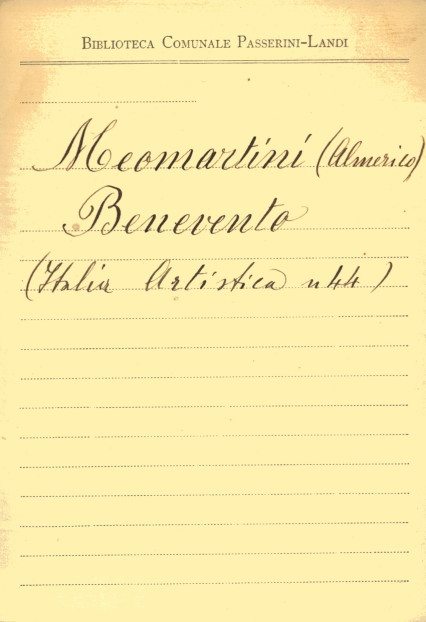 Biblioteca Comunale Passerini-Landi
Meomartini (Almerico)
Benevento
(Italia Artistica n 44)